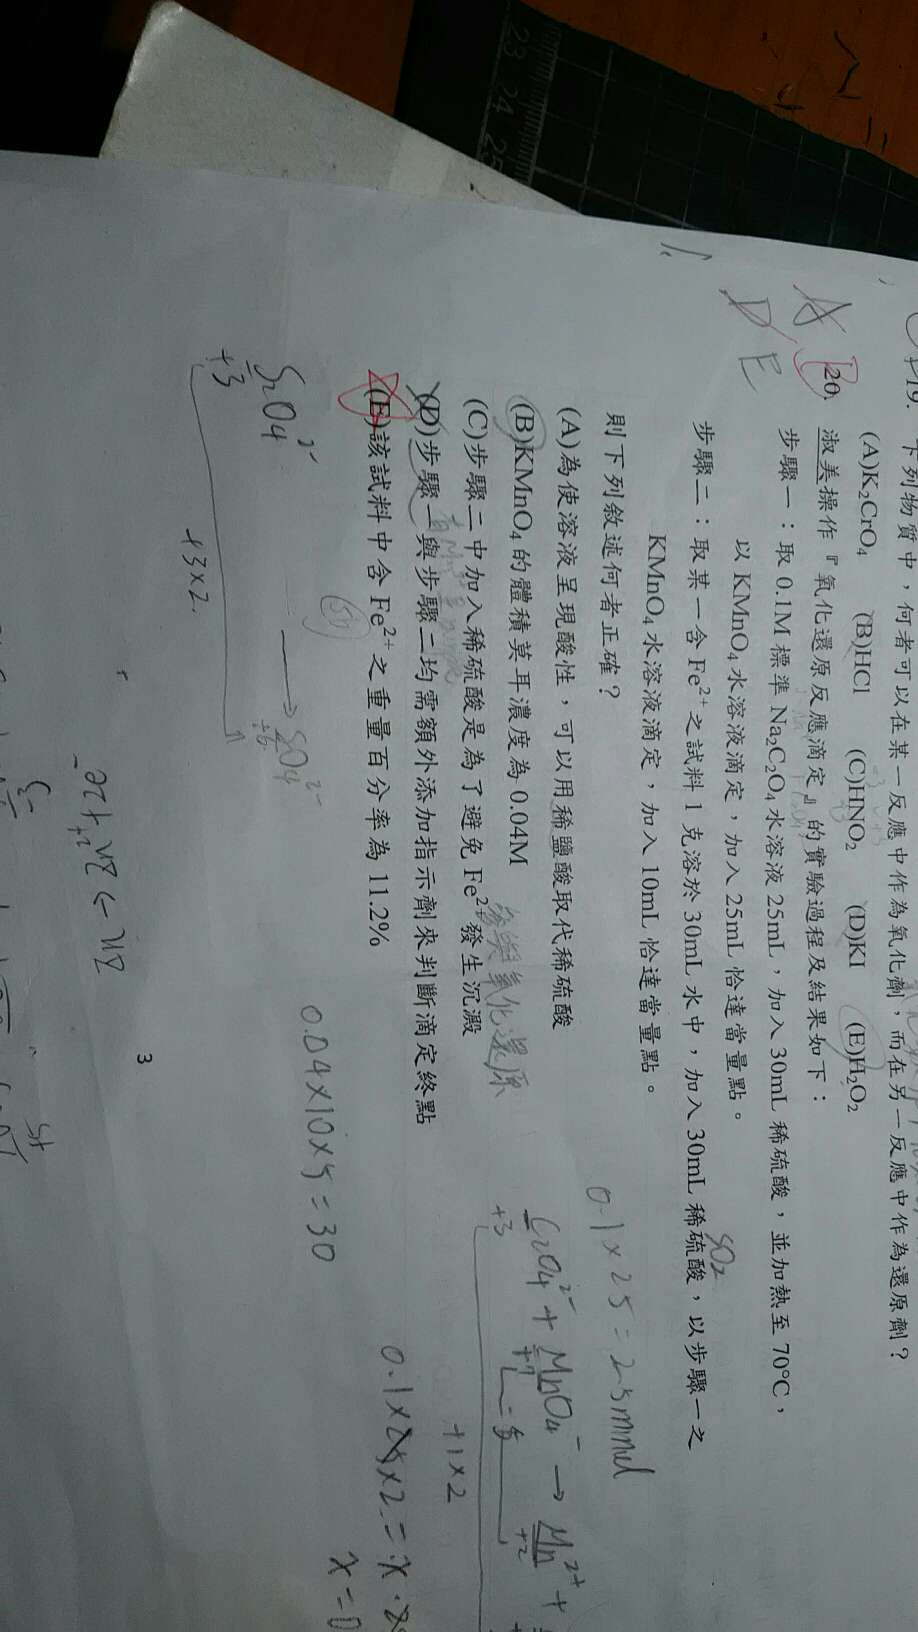 19. 下列物質中，何者可以在某一反應中作為氧化劑，而在另一反應中作為還原劑？
(A)K₂CrO₄ (B)HCl (C)HNO₂ (D)KI (E)H₂O₂
20. 淑美操作『氧化還原反應滴定』的實驗過程及結果如下：
步驟一：取 0.1M 標準 Na₂C₂O₄ 水溶液 25mL，加入 30mL 稀硫酸，並加熱至 70°C，
以 KMnO₄ 水溶液滴定，加入 25mL 恰達當量點。
步驟二：取某一含 Fe²⁺ 之試料 1 克溶於 30mL 水中，加入 30mL 稀硫酸，以步驟一之
KMnO₄ 水溶液滴定，加入 10mL 恰達當量點。
則下列敘述何者正確？
(A)為使溶液呈現酸性，可以用稀鹽酸取代稀硫酸
(B)KMnO₄ 的體積莫耳濃度為 0.04M
(C)步驟二中加入稀硫酸是為了避免 Fe²⁺ 發生沉澱
(D)步驟一與步驟二均需額外添加指示劑來判斷滴定終點
(E)該試料中含 Fe²⁺ 之重量百分率為 11.2%
D E
SO₂
0.1×25=25mmol
C₂O₄²⁻ + MnO₄⁻ → Mn²⁺ +
+3 +7 +2
+1×2
0.1×25×2=x·
x=0
會與氧化還原
0.04×10×5=30
S₂O₄²⁻ → SO₄²⁻
+3 +6
+3×2
Zn → Zn²⁺ + 2e⁻
3